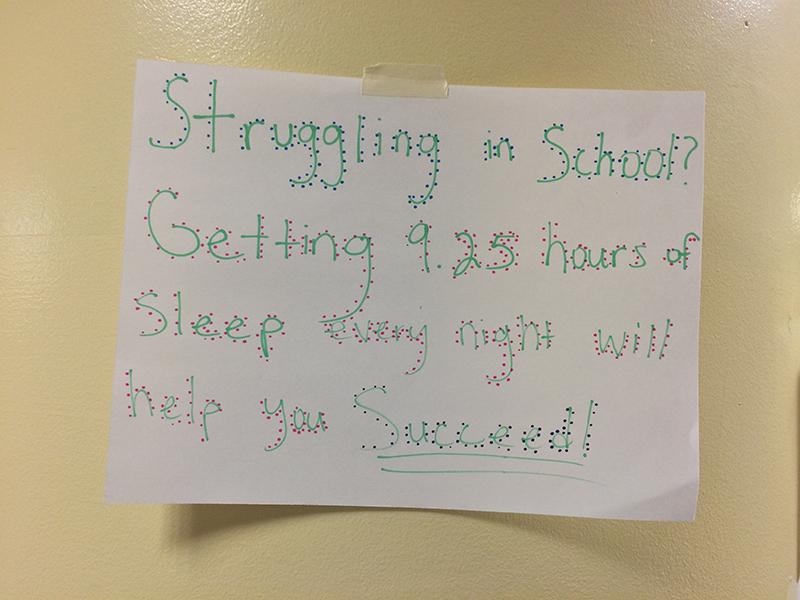 Struggling in School?
Getting 9.25 hours of
Sleep every night will
help you Succeed!